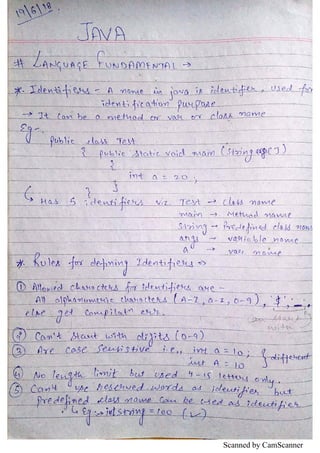 19/6/18
JAVA
# LANGUAGE FUNDAMENTAL →
*. Identifiers - A name in java is identifier, used for
identification purpose
→ It can be a method or var or class name
Eg -.
public class Test
{ public static void main (String args[])
{
int a = 20;
}
}
↳ Has 5 identifiers viz. Test → class name
main → Method name
String → Predefined class name
args → variable name
a → var name
*. Rules for defining Identifiers =>
① Allowed characters for identifiers are -
All alphanumeric characters (A-Z, a-z, 0-9), '$', '_'
else get compilatⁿ err.
can start
with
② Can't start with digits (0-9)
③ Are case sensitive i.e., int a = 10; } different
int A = 10
④ No length limit but used 4-15 letters only.
⑤ Can't use reserved words as identifier but
Predefined class name can be used as identifier
↳ Eg → int string = 100 (✓)
Scanned by CamScanner